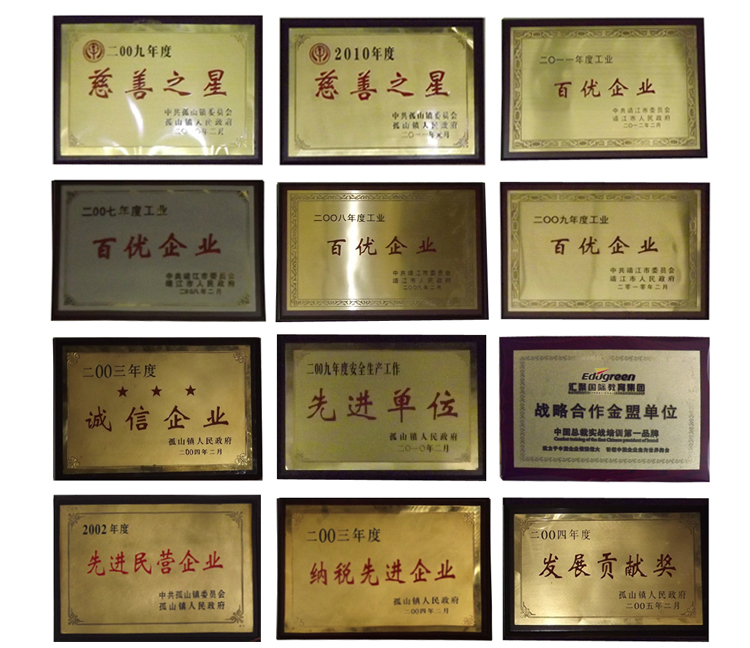 二00九年度
慈善之星
中共孤山镇委员会
孤山镇人民政府
二〇一〇年二月
2010年度
慈善之星
中共孤山镇委员会
孤山镇人民政府
二〇一一年元月
二〇一一年度工业
百优企业
中共靖江市委员会
靖江市人民政府
二〇一二年二月
二00七年度工业
百优企业
中共靖江市委员会
靖江市人民政府
二00八年二月
二〇〇八年度工业
百优企业
中共靖江市委员会
靖江市人民政府
二〇〇九年二月
二〇〇九年度工业
百优企业
中共靖江市委员会
靖江市人民政府
二零一零年二月
二00三年度
★ ★ ★
诚信企业
孤山镇人民政府
二00四年二月
二00九年度安全生产工作
先进单位
孤山镇人民政府
二〇一〇年二月
Edugreen
汇聚国际教育集团
战略合作金盟单位
中国总裁实战培训第一品牌
Combat training of the first Chinese president of brand
2002年度
先进民营企业
中共孤山镇委员会
孤山镇人民政府
二00三年度
纳税先进企业
孤山镇人民政府
二00四年二月
二00四年度
发展贡献奖
孤山镇人民政府
二00五年二月